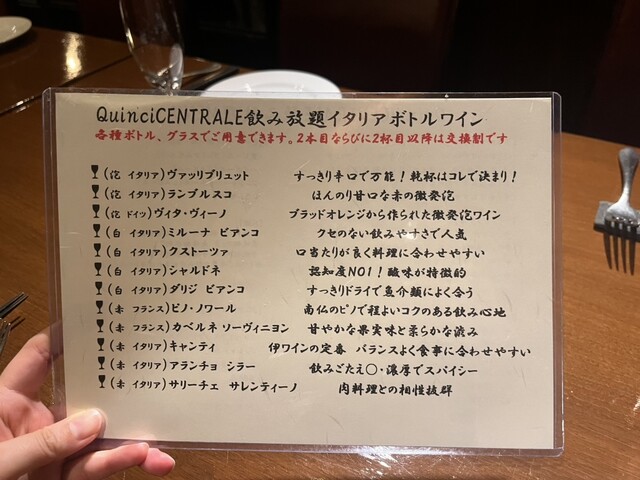 QuinciCENTRALE飲み放題イタリアボトルワイン
各種ボトル、グラスでご用意できます。2本目ならびに2杯目以降は交換制です
(泡 イタリア)ヴァッリブリュット すっきり辛口で万能！乾杯はコレで決まり！
(泡 イタリア)ランブルスコ ほんのり甘口な赤の微発泡
(泡 ドイツ)ヴィタ・ヴィーノ ブラッドオレンジから作られた微発泡ワイン
(白 イタリア)ミルーナ ビアンコ クセのない飲みやすさで人気
(白 イタリア)クストーツァ 口当たりが良く料理に合わせやすい
(白 イタリア)シャルドネ 認知度NO1！酸味が特徴的
(白 イタリア)ダリジ ビアンコ すっきりドライで魚介類によく合う
(赤 フランス)ピノ・ノワール 南仏のピノで程よいコクのある飲み心地
(赤 フランス)カベルネ ソーヴィニヨン 甘やかな果実味と柔らかな渋み
(赤 イタリア)キャンティ 伊ワインの定番 バランスよく食事に合わせやすい
(赤 イタリア)アランチョ シラー 飲みごたえ〇・濃厚でスパイシー
(赤 イタリア)サリーチェ サレンティーノ 肉料理との相性抜群